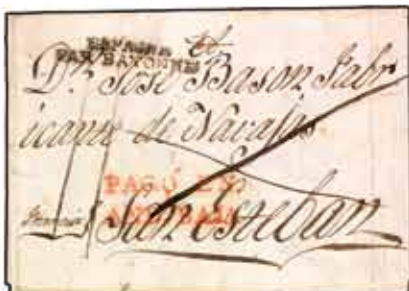 ESPAGNE
PAR BAYONNE
Dn. José Bason Fabr
icante de Navajas
PAGÓ EN
Francia San Esteban